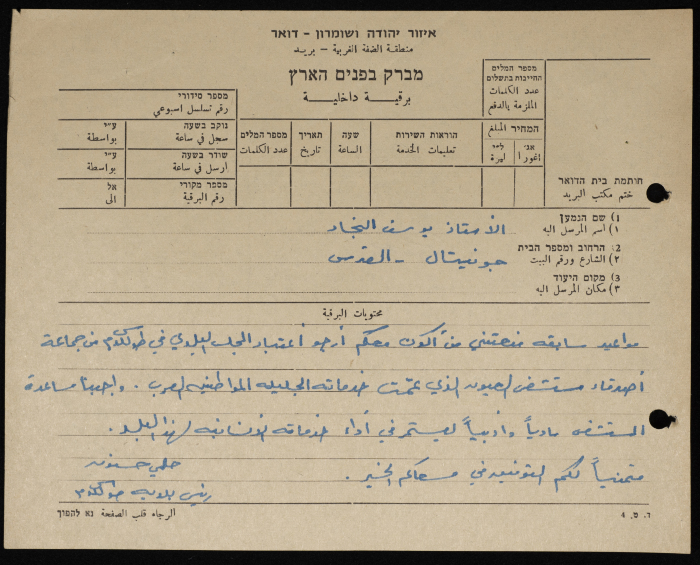 איזור יהודה ושומרון - דואר
منطقة الضفة الغربية - بريد
מברק בפנים הארץ
برقية داخلية
מספר המלים
החייבות בתשלום
عدد الكلمات
الملزمة بالدفع
המחיר المبلغ
אג' اغورا
ל"י ليرة
הוראות השירות
تعليمات الخدمة
שעה
الساعة
תאריך
تاريخ
מספר המלים
عدد الكلمات
מספר סידורי
رقم تسلسل اسبوعي
נוקב בשעה
سجل في ساعة
ע"י
بواسطة
שודר בשעה
ارسل في ساعة
ע"י
بواسطة
מספר מקורי
رقم البرقية
אל
الى
חותמת בית הדואר
ختم مكتب البريد
1) שם הנמען
١) اسم المرسل اليه
الأستاذ يوسف النجار
2) הרחוב ומספר הבית
٢) الشارع ورقم البيت
جوسبيتال - القدس
3) מקום היעוד
٣) مكان المرسل اليه
محتويات البرقية
مواعيد سابقه منعتني من أكون معكم أرجو اعتبار المجلس البلدي في طولكرم من جماعة
أصدقاء مستشفى العيون الذي عمّت خدماته الجليله المواطنيه العرب . واجبنا مساعدة
المستشفى مادياً وأدبياً ليستمر في أداء خدماته الانسانيه لهذا البلد .
متمنياً لكم التوفيق في مسعاكم الخير .
حلمي حنون
رئيس بلدية طولكرم
الرجاء قلب الصفحة נא להפוך
ד. ט. 4